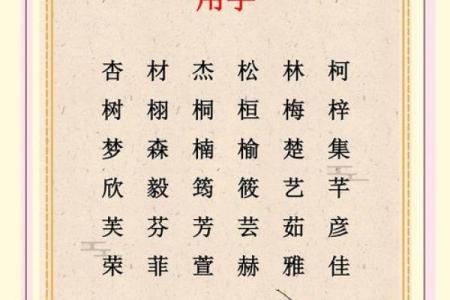 用字
杏 材 杰 松 林 柯
树 栩 桐 桓 梅 梓
梦 森 楠 榆 楚 集
欣 毅 筠 筱 艺 芊
芙 芬 芳 芸 茹 彦
荣 菲 萱 赫 雅 佳